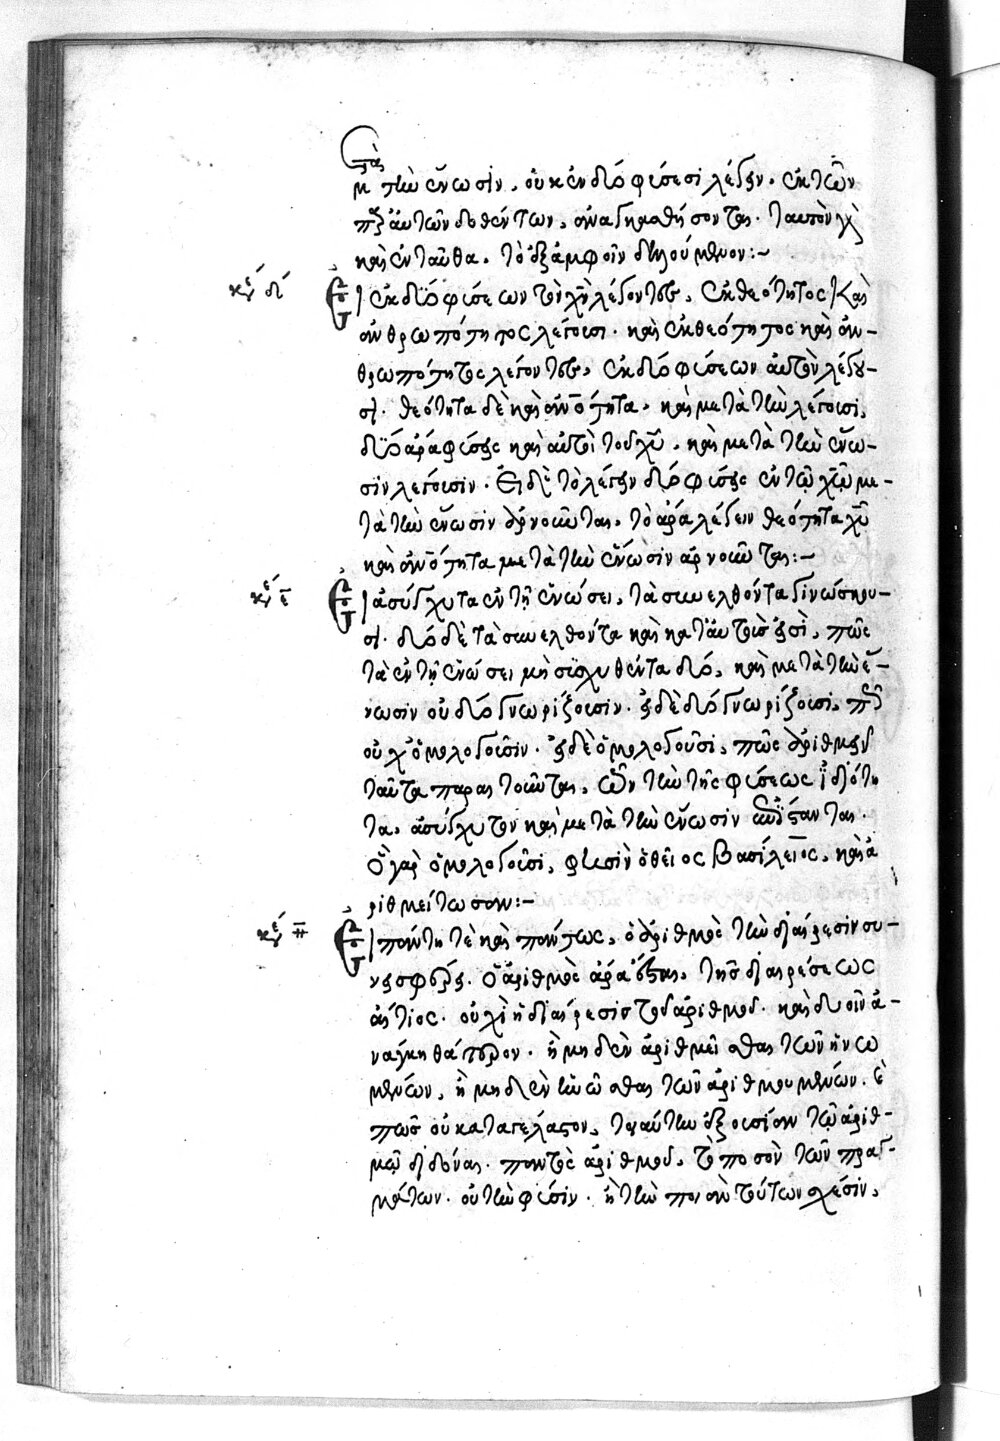 μετὰ τὴν ἕνωσιν, οὐκ ἐν δύο φύσεσι λέγειν. ἐκ τῶν
παρ' αὐτῶν δοθέντων, ἀναγκασθήσονται. ταυτὸν γὰρ
κἀνταῦθα, τὸ ἐξ ἀμφοῖν δηλούμενον:~
κεφ δ
Εἰ ἐκ δύο φύσεων τὸν χν λέγοντες, ἐκ θεότητος καὶ
ἀνθρωπότητος λέγουσι. καὶ ἐκ θεότητος καὶ ἀν-
θρωπότητος λέγοντες, ἐκ δύο φύσεων αὐτὸν λέγου-
σι. θεότητα δὲ καὶ ἀνότητα, καὶ μετὰ τὴν λέγουσι,
δύο ἄρα φύσεις καὶ αὐτοὶ τοῦ χυ, καὶ μετὰ τὴν ἕνω-
σιν λέγουσιν. Εἰ δὲ τὸ λέγειν δύο φύσεις ἐν τῷ χῳ με-
τὰ τὴν ἕνωσιν ἀρνοῦνται, τὸ ἄρα λέγειν θεότητα χυ
καὶ ἀνότητα μετὰ τὴν ἕνωσιν ἀρνοῦνται:~
κεφ ε
Εἰ ἀσύγχυτα ἐν τῇ ἑνώσει, τὰ συνελθόντα γινώσκου-
σι. δύο δὲ τὰ συνελθόντα καὶ κατ' αὐτούς ἐστι, πῶς
τὰ ἐν τῇ ἑνώσει μὴ συγχυθέντα δύο, καὶ μετὰ τὴν ἕ-
νωσιν οὐ δύο γνωρίζουσιν. εἰ δὲ δύο γνωρίζουσι, πῶς
οὐχ ὁμολογοῦσιν. εἰ δὲ ὁμολογοῦσι, πῶς ἀριθμεῖν
ταῦτα παραιτοῦνται, ὧν τὴν τῆς φύσεως ἰδιότη
τα, ἀσύγχυτον καὶ μετὰ τὴν ἕνωσιν
Ὃ γὰρ ὁμολογοῦσι, φησὶν ὁ θεῖος Βασίλειος, καὶ ἀ
ριθμείτωσαν:~
κεφ
Εἰ πάντη τὲ καὶ πάντως, ὁ ἀριθμὸς τὴν διαίρεσιν συ-
νεισφέρει. Ὁ ἀριθμὸς ἄρα ἔσται, τῆς διαιρέσεως
αἴτιος. οὐχὶ ἡ διαίρεσις τοῦ ἀριθμοῦ. καὶ δυοῖν ἀ-
νάγκη θάτερον. ἢ μηδὲν ἀριθμεῖσθαι τῶν ἡνω
μένων, ἢ μηδὲν ἡνῶσθαι τῶν ἀριθμουμένων.
πῶς οὐ καταγέλαστον, τοιαύτην ἐξουσίαν τῷ ἀριθ-
μῷ διδόναι. παντὸς ἀριθμοῦ, τὸ ποσὸν τῶν πραγ-
μάτων. οὐ τὴν φύσιν. ἢ τὴν ποιὰν τούτων σχέσιν,